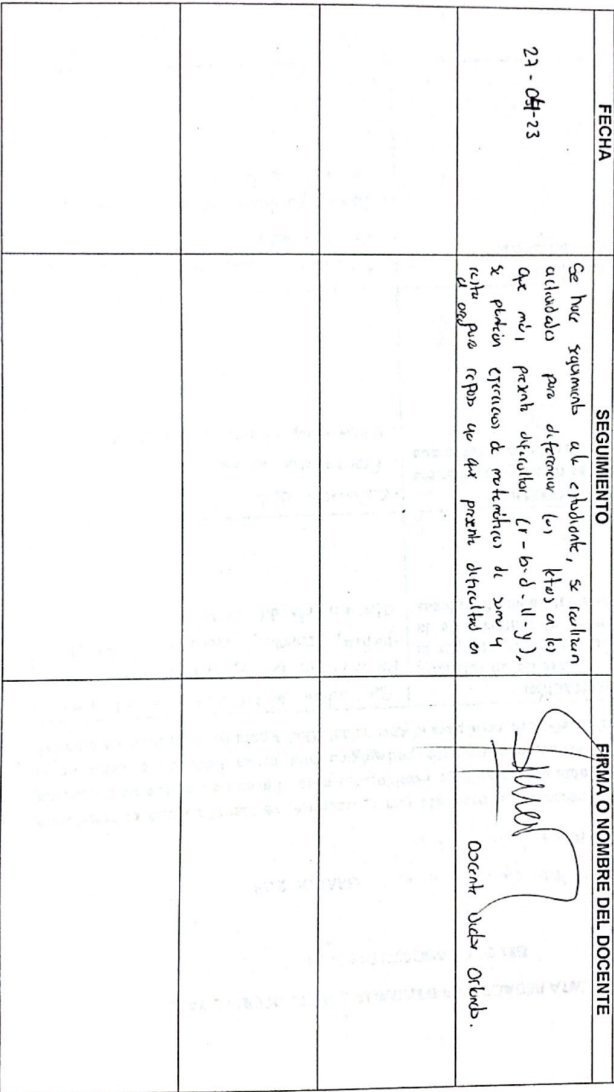 FECHA
SEGUIMIENTO
FIRMA O NOMBRE DEL DOCENTE
27-04-23
Se hace seguimiento al estudiante, se realizan
actividades para diferenciar las letras en las
que más presenta dificultad (r-b-d-ll-y),
se plantean ejercicios de matemáticas de suma y
resta para repaso ya que presenta dificultad en
Docente Victor Orlando.